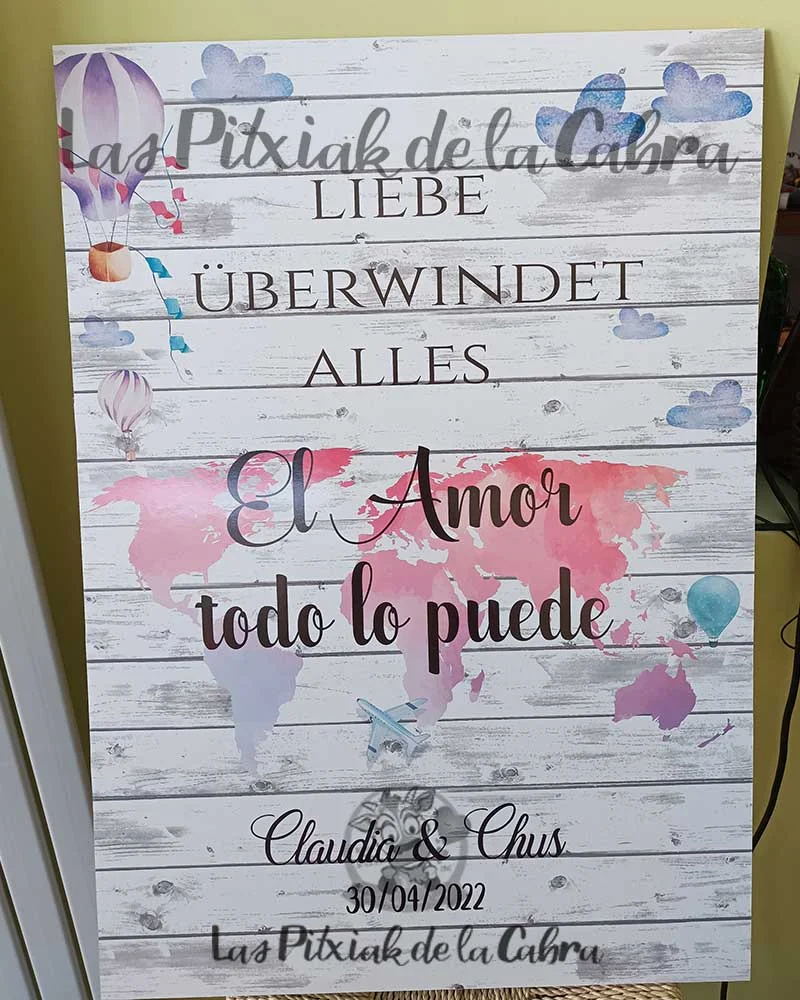 Las Pitxiak de la Cabra
LIEBE
ÜBERWINDET
ALLES
El Amor
todo lo puede
Claudia & Chus
30/04/2022
Las Pitxiak de la Cabra